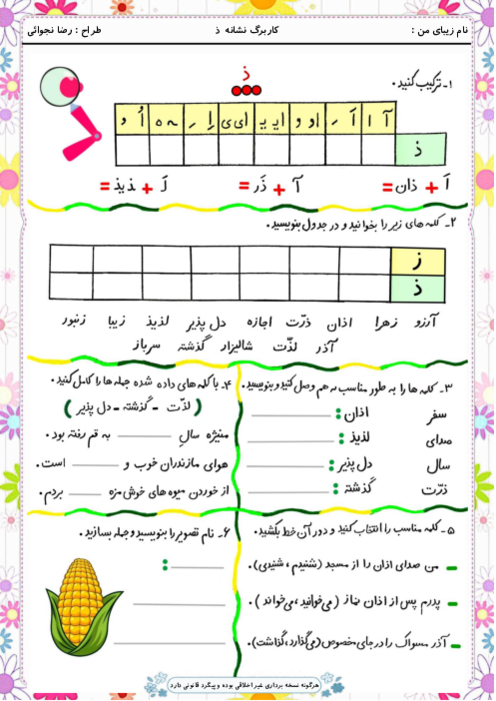 نام زیبای من :
کاربرگ نشانه ذ
طراح : رضا نجوائی
ذ
۱ـ ترکیب کنید.
آ ا اَ ـَ او و ایـ یـ ای ی اِ ـِ ـه ه اُ و
ذ
اَ + ذان =
آ + ذَر =
لَـ + ذیذ =
۲ـ کلمه های زیر را بخوانید و در جدول بنویسید.
ز
ذ
آرزو زهرا اذان ذرّت اجازه دل پذیر لذیذ زیبا زنبور
آذر لذّت شالیزار گذشته سرباز
۳ـ کلمه ها را به طور مناسب به هم وصل کنید و بنویسید.
سفر اذان :
صدای لذیذ :
سال دل پذیر :
ذرّت گذشته :
۴ـ با کلمه های داده شده جمله ها را کامل کنید.
( لذّت - گذشته - دل پذیر )
منیژه سال به قم رفته بود.
هوای مازندران خوب و است.
از خوردن میوه های خوش مزه بردم.
۵ـ کلمه مناسب را انتخاب کنید و دور آن خط بکشید.
ـ من صدای اذان را از مسجد (شنیدم ، شنیدی).
ـ پدرم پس از اذان نماز (می‌خوانید ، می‌خواند).
ـ آذر مسواک را در جای مخصوص (می‌گذارد ، گذاشت).
۶ـ نام تصویر را بنویسید و جمله بسازید.
:
هرگونه نسخه برداری غیر اخلاقی بوده و پیگرد قانونی دارد